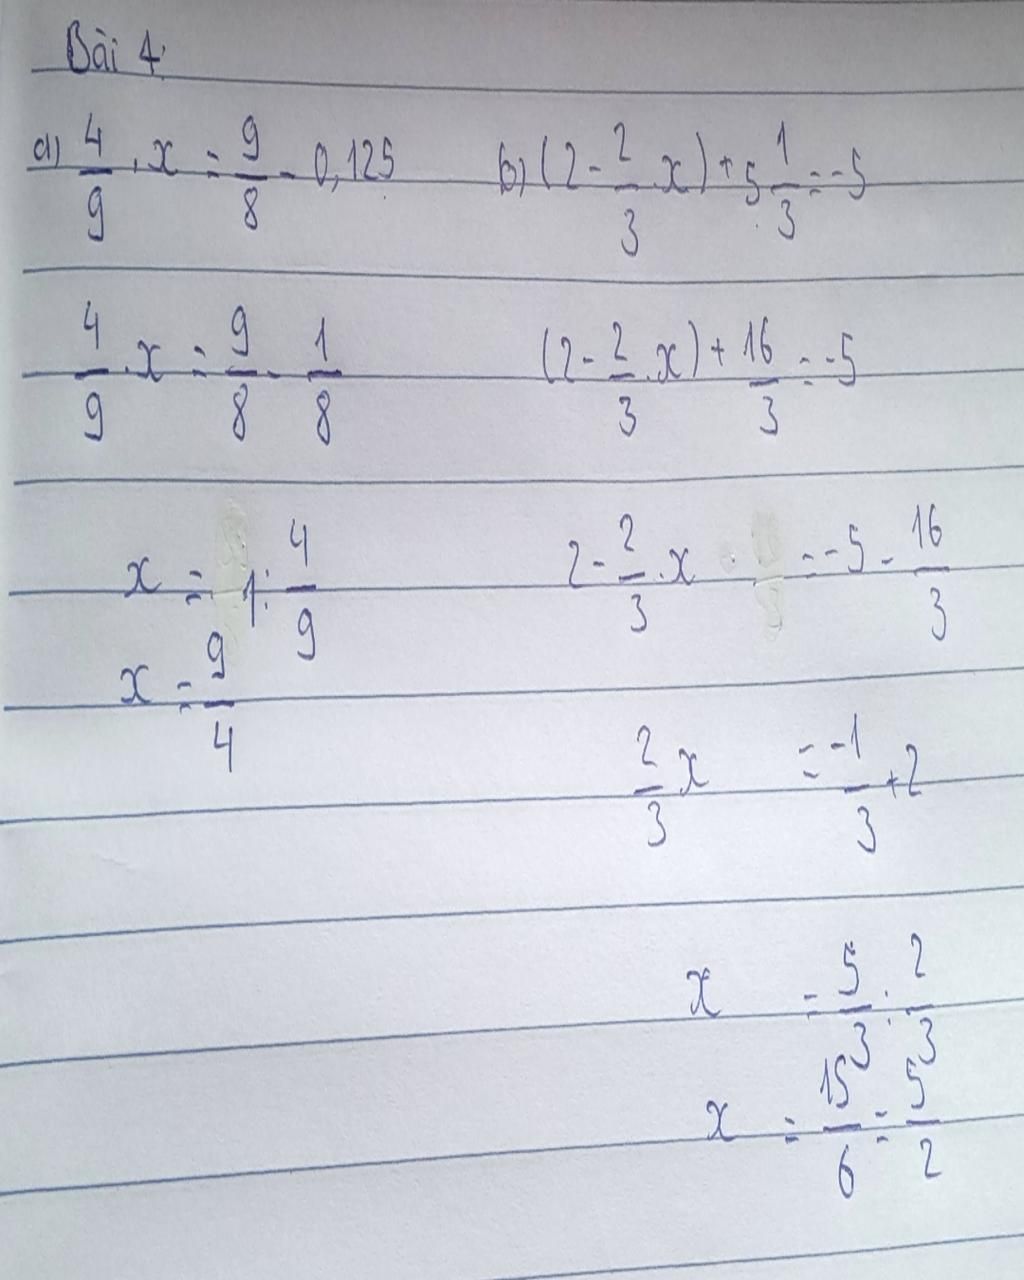 Bài 4
a) 4/9 . x = 9/8 - 0,125
4/9 . x = 9/8 - 1/8
x = 1 : 4/9
x = 9/4
b) (2 - 2/3 . x) + 5 1/3 = -5
(2 - 2/3 . x) + 16/3 = -5
2 - 2/3 . x = -5 - 16/3
2/3 . x = -1/3 + 2
x = 5/3 : 2/3
x = 15/6 = 5/2